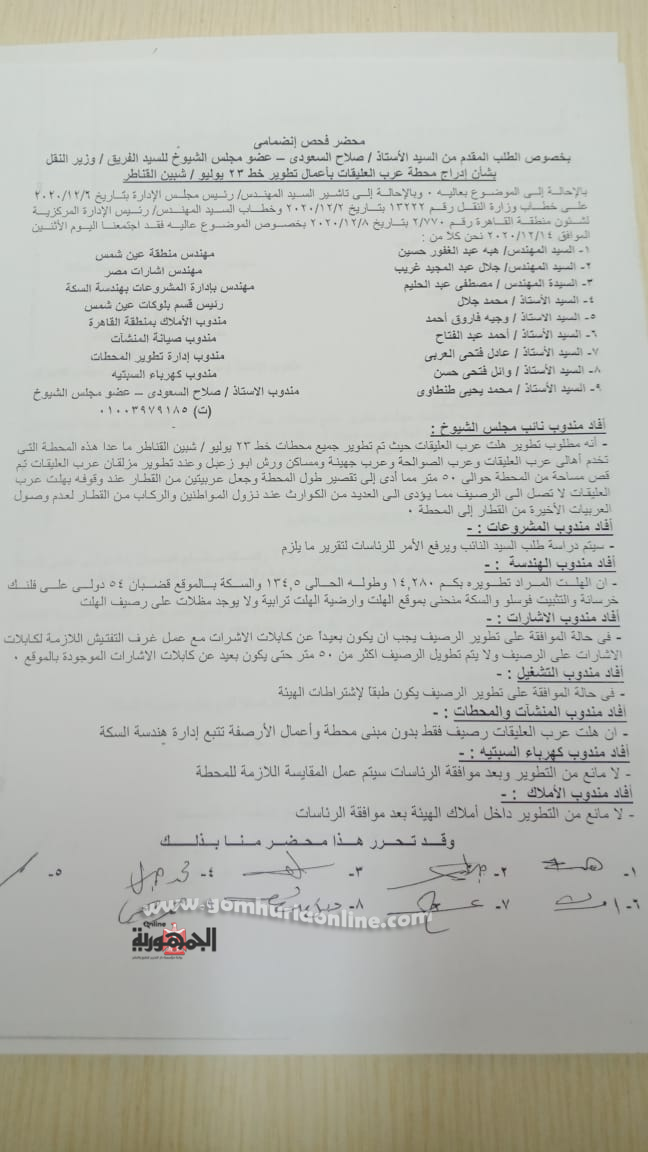 محضر فحص إنضمامى
بخصوص الطلب المقدم من السيد الأستاذ / صلاح السعودى – عضو مجلس الشيوخ للسيد الفريق / وزير النقل
بشأن إدراج محطة عرب العليقات بأعمال تطوير خط ٢٣ يوليو / شبين القناطر
بالإحالة إلى الموضوع بعاليه ٠ وبالإحالة إلى تاشير السيد المهندس/ رئيس مجلس الإدارة بتاريخ ٢٠٢٠/١٢/٦
على خطاب وزارة النقل رقم ١٣٢٢٢ بتاريخ ٢٠٢٠/١٢/٢ وخطاب السيد المهندس/ رئيس الإدارة المركزية
لشئون منطقة القاهرة رقم ٢/٧٧٠ بتاريخ ٢٠٢٠/١٢/٨ بخصوص الموضوع عاليه فقد اجتمعنا اليوم الأثنين
الموافق ٢٠٢٠/١٢/١٤ نحن كلاً من :
١- السيد المهندس/ هبه عبد الغفور حسين مهندس منطقة عين شمس
٢- السيد المهندس/ جلال عبد المجيد غريب مهندس اشارات مصر
٣- السيدة المهندس / مصطفى عبد الحليم مهندس بإدارة المشروعات بهندسة السكة
٤- السيد الأستاذ / محمد جلال رئيس قسم بلوكات عين شمس
٥- السيد الاستاذ / وجيه فاروق أحمد مندوب الأملاك بمنطقة القاهرة
٦- السيد الأستاذ / أحمد عبد الفتاح مندوب صيانة المنشآت
٧- السيد الأستاذ / عادل فتحى العربى مندوب إدارة تطوير المحطات
٨- السيد الأستاذ / وائل فتحى حسن مندوب كهرباء السبتيه
٩- السيد الأستاذ / محمد يحيى طنطاوى مندوب الاستاذ / صلاح السعودى – عضو مجلس الشيوخ
(ت) ٠١٠٠٣٩٧٩١٨٥
أفاد مندوب نائب مجلس الشيوخ :
- أنه مطلوب تطوير هلت عرب العليقات حيث تم تطوير جميع محطات خط ٢٣ يوليو / شبين القناطر ما عدا هذه المحطة التى
تخدم أهالى عرب العليقات وعرب الصوالحة وعرب جهينة ومساكن ورش ابو زعبل وعند تطوير مزلقان عرب العليقات تم
قص مساحة من المحطة حوالى ٥٠ متر مما أدى إلى تقصير طول المحطة وجعل عربيتين من القطار عند وقوفه بهلت عرب
العليقات لا تصل الى الرصيف مما يؤدى الى العديد من الكوارث عند نزول المواطنين والركاب من القطار لعدم وصول
العربيات الأخيرة من القطار إلى المحطة ٠
أفاد مندوب المشروعات : -
- سيتم دراسة طلب السيد النائب ويرفع الأمر للرئاسات لتقرير ما يلزم
أفاد مندوب الهندسة : -
- ان الهلت المراد تطويره بكم ١٤,٢٨٠ وطوله الحالى ١٣٤,٥ والسكة بالموقع قضبان ٥٤ دولى على فلنك
خرسانة والتثبيت فوسلو والسكة منحنى بموقع الهلت وارضية الهلت ترابية ولا يوجد مظلات على رصيف الهلت
أفاد مندوب الاشارات : -
- فى حالة الموافقة على تطوير الرصيف يجب ان يكون بعيداً عن كابلات الاشرات مع عمل غرف التفتيش اللازمة لكابلات
الاشارات على الرصيف ولا يتم تطويل الرصيف اكثر من ٥٠ متر حتى يكون بعيد عن كابلات الاشارات الموجودة بالموقع ٠
أفاد مندوب التشغيل : -
- فى حالة الموافقة على تطوير الرصيف يكون طبقاً لإشتراطات الهيئة
أفاد مندوب المنشآت والمحطات : -
- ان هلت عرب العليقات رصيف فقط بدون مبنى محطة وأعمال الأرصفة تتبع إدارة هندسة السكة
أفاد مندوب كهرباء السبتيه : -
- لا مانع من التطوير وبعد موافقة الرئاسات سيتم عمل المقايسة اللازمة للمحطة
أفاد مندوب الأملاك : -
- لا مانع من التطوير داخل أملاك الهيئة بعد موافقة الرئاسات
وقد تحرر هذا محضر منا بذلك
١- ٢- ٣- ٤- ٥-
٦- ٧- ٨-
www.gomhuriaonline.com
online
الجمهورية